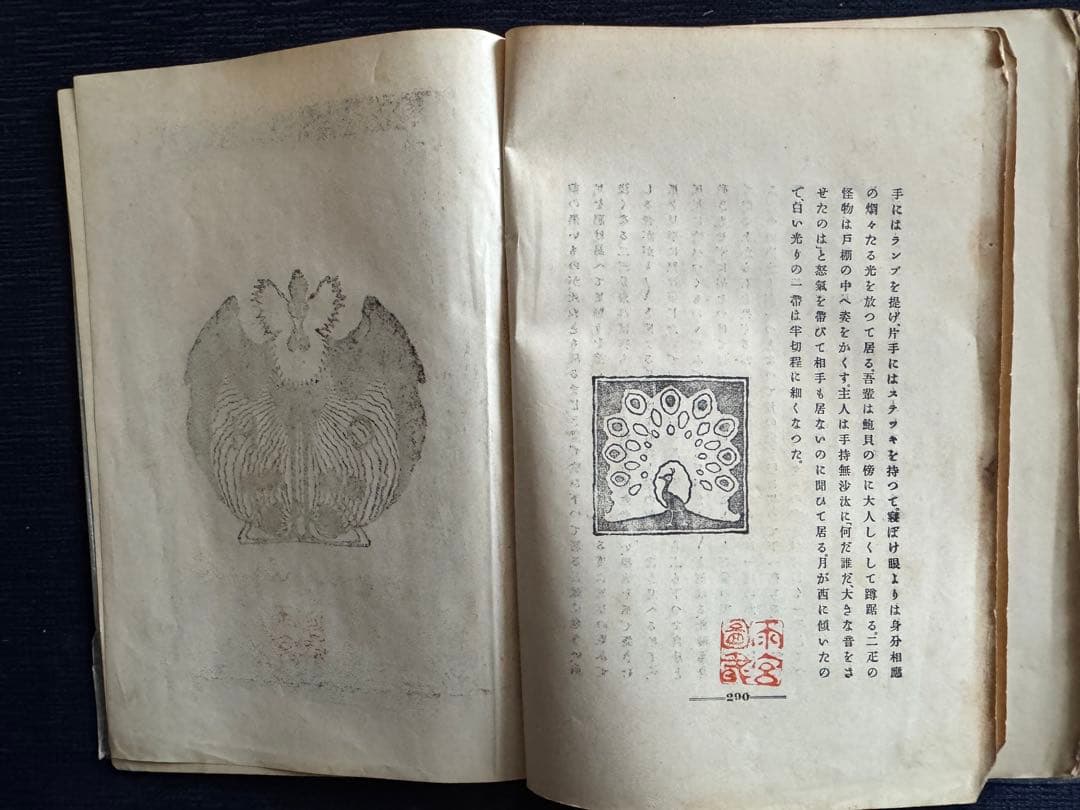 手にはランプを提げ、片手にはステッキを持つて、寝ぼけ眼よりは身分相應
の熌々たる光を放つて居る。吾輩は鮑貝の傍に大人しくして蹲踞る。二疋の
怪物は戸棚の中へ姿をかくす。主人は手持無沙汰に「何だ誰だ、大きな音をさ
せたのは」と怒氣を帶びて相手も居ないのに聞ひて居る。月が西に傾いたの
で、白い光りの一帶は半切程に細くなつた。
雨宮
圖書
290